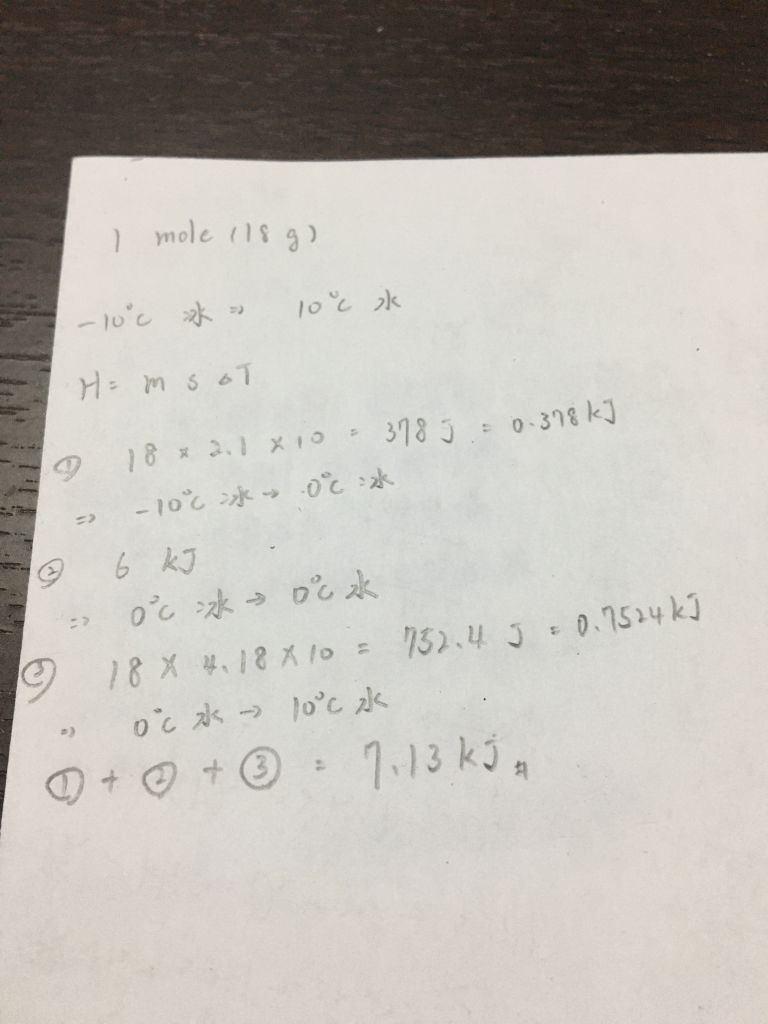 1 mole (18 g)
-10°C 冰 => 10°C 水
H = m s ΔT
① 18 × 2.1 × 10 = 378 J = 0.378 kJ
=> -10°C 冰 → 0°C 冰
② 6 kJ
=> 0°C 冰 → 0°C 水
③ 18 × 4.18 × 10 = 752.4 J = 0.7524 kJ
=> 0°C 水 → 10°C 水
① + ② + ③ = 7.13 kJ #